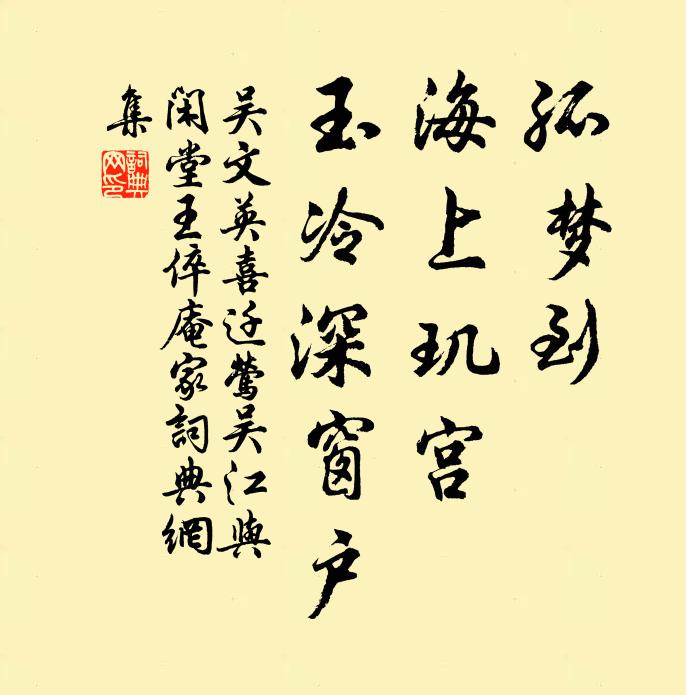 孤梦到
海上玑宫
玉冷深窗户
吴文英喜迁莺吴江與
闲堂王倅庵家詞典網
集
詞典网印